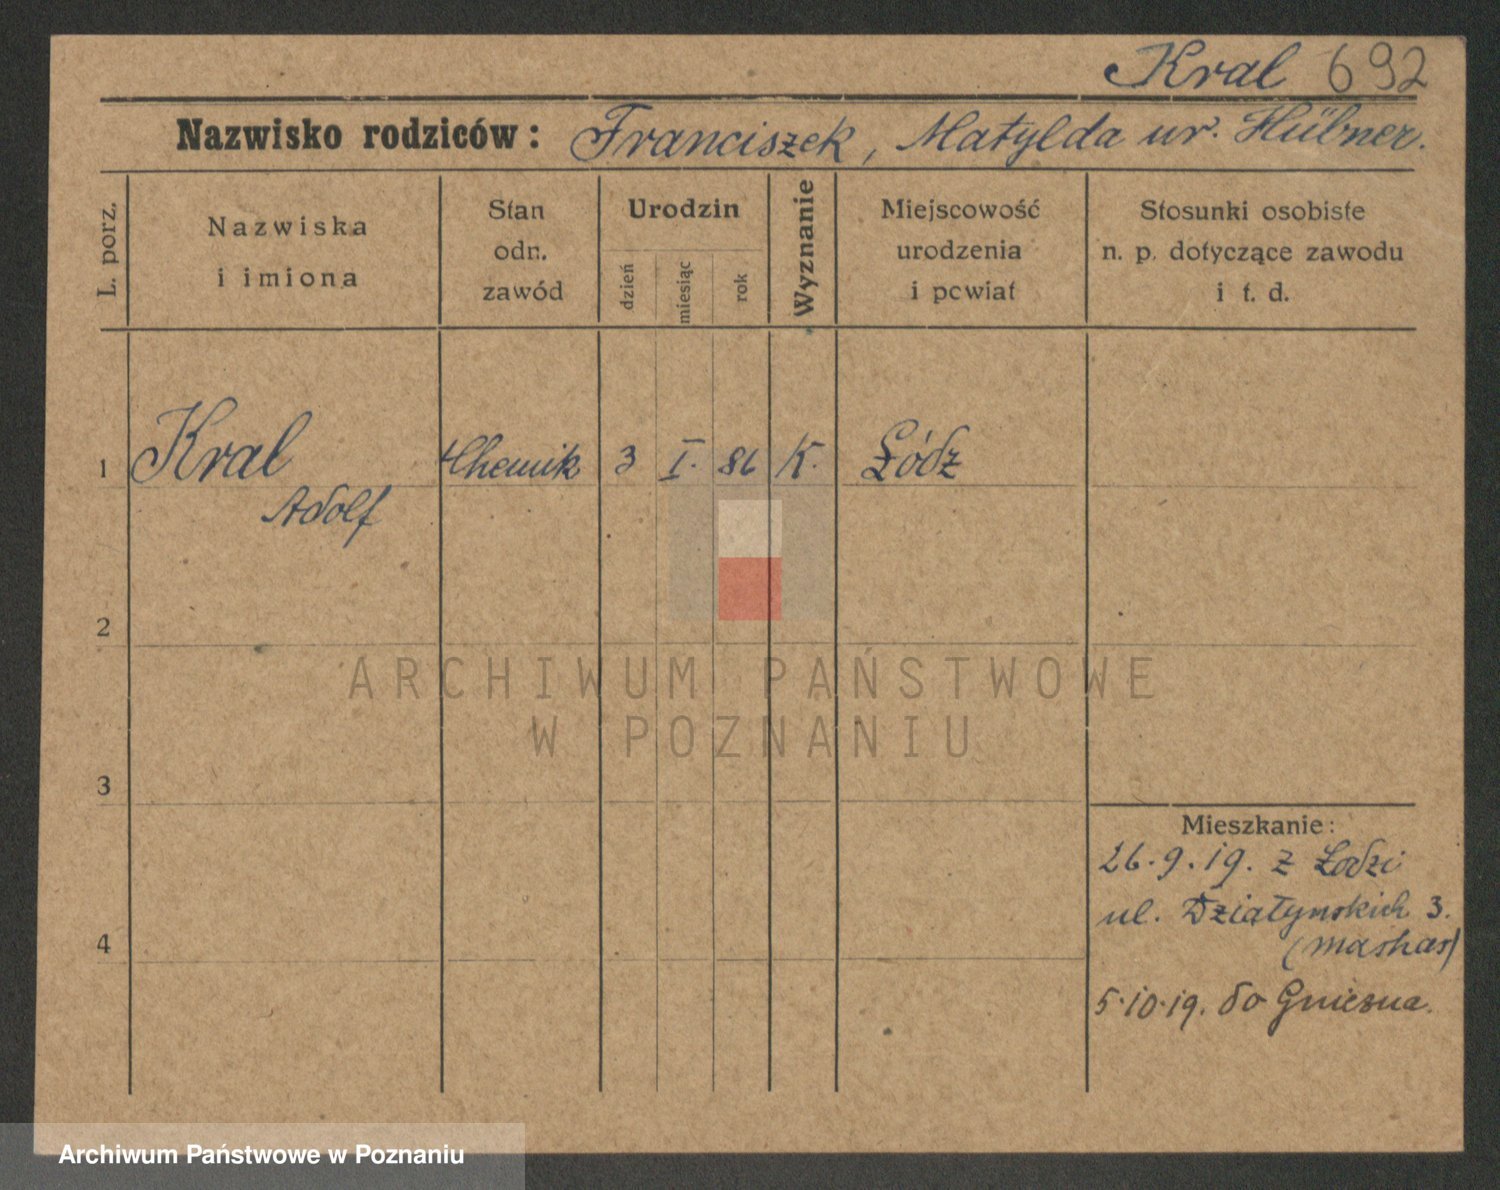 Kral 692
Nazwisko rodziców: Franciszek, Matylda ur. Hübner.
L. porz.
Nazwiska
i imiona
Stan
odn.
zawód
Urodzin
dzień
miesiąc
rok
Wyznanie
Miejscowość
urodzenia
i powiat
Stosunki osobiste
n. p. dotyczące zawodu
i t. d.
1 Kral Chemik 3 I. 86 K. Łódz
Adolf
2
3
4
Mieszkanie:
26.9.19. z Łodzi
ul. Działynskich 3.
5.10.19. do Gniezna.
ARCHIWUM PAŃSTWOWE
W POZNANIU
Archiwum Państwowe w Poznaniu